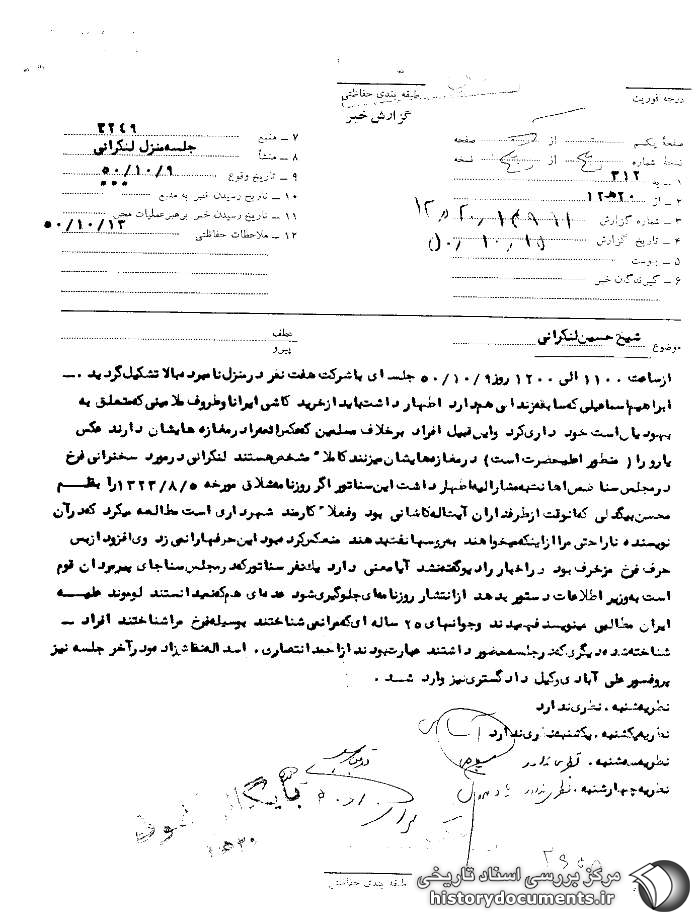 درجه فوریت
طبقه بندی حفاظتی
گزارش خبر
صفحهٔ یکم از صفحه
نسخهٔ شماره از نسخه
۱ – به ۳۱۲
۲ – از ۱۲ه۲۰
۳ – شماره گزارش
۴ – تاریخ گزارش
۵ – پیوست
۶ – گیرندگان خبر
۷ – منبع ۳۲۴۹
۸ – منشأ جلسه منزل لنکرانی
۹ – تاریخ وقوع ۵۰/۱۰/۹
۱۰ – تاریخ رسیدن خبر به منبع
۱۱ – تاریخ رسیدن خبر برهبر عملیات
۱۲ – ملاحظات حفاظتی ۵۰/۱۰/۱۳
موضوع شیخ حسین لنکرانی
عطف
پیرو
از ساعت ۱۱۰۰ الی ۱۲۰۰ روز ۵۰/۱۰/۹ جلسه ای با شرکت هفت نفر در منزل نامبرده بالا تشکیل گردید . –
ابراهیم اسماعیلی که سابقه زندانی هم دارد اظهار داشت باید از خرید کاشی ایرانا و ظروف ملامینی که متعلق به
یهودیان است خود داری کرد واین قبیل افراد برخلاف مسلمین که عکس در مغازه هایشان دارند عکس
یارو را ( منظور اعلیحضرت است ) در مغازه هایشان میزنند کاملا مشخص هستند لنکرانی در مورد سخنرانی فرخ
در مجلس سنا مشارالیه اظهار داشت این سناتور اگر روزنامه مورخه ۱۳۲۳/۸/۵ را بقلم
محسن بیگدلی که آنوقت از طرفداران آیت اله کاشانی بود وفعلا کارمند شهرداری است مطالعه میکرد که در آن
نویسنده ناراحتی مرا از اینکه میخواهند به روسها نفت بدهند منعکس کرده بود این حرفها را نمی زد وی افزود از بس
حرف فرخ مزخرف بود در اخبار رادیو گفته نشد آیا معنی دارد یک نفر سناتور که در مجلس سنا جای پیرمردان قوم
است به وزیر اطلاعات دستور بدهد از انتشار روزنامه ای جلوگیری شود عده ای هم که نمیدانستند لوموند علیه
ایران مطالبی مینویسد فهمیدند وجوانهای ۲۵ ساله ای که مرا نمی شناختند بوسیله فرخ مرا شناختند افراد –
شناخته شده دیگری که در جلسه حضور داشتند عبارت بودند از احمد انتصاری . اسداله در آخر جلسه نیز
پروفسور علی آبادی وکیل دادگستری نیز وارد شد .
نظریه شنبه . نظری ندارد
نظریه یکشنبه . یکشنبه نظری ندارد
نظریه سه شنبه . نظری ندارد
نظریه چهارشنبه . نظری ندارد
بایگانی
طبقه بندی حفاظتی
مرکز بررسی اسناد تاریخی
historydocuments.ir